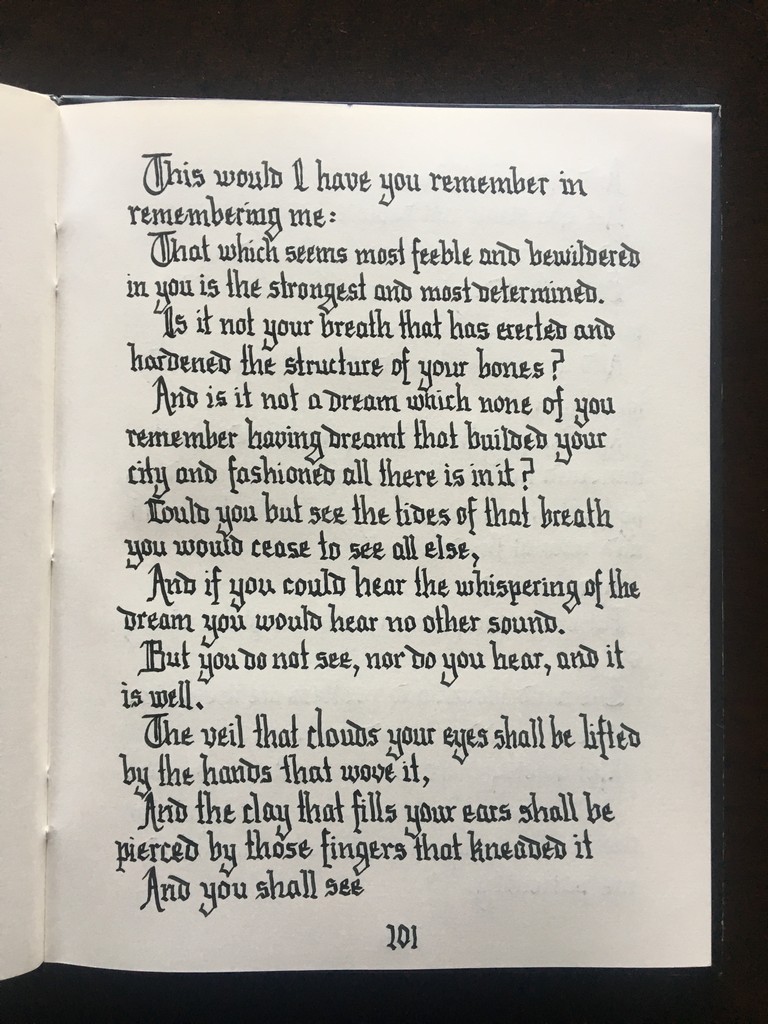 This would I have you remember in
remembering me:
That which seems most feeble and bewildered
in you is the strongest and most determined.
Is it not your breath that has erected and
hardened the structure of your bones?
And is it not a dream which none of you
remember having dreamt that builded your
city and fashioned all there is in it?
Could you but see the tides of that breath
you would cease to see all else,
And if you could hear the whispering of the
dream you would hear no other sound.
But you do not see, nor do you hear, and it
is well.
The veil that clouds your eyes shall be lifted
by the hands that wove it,
And the clay that fills your ears shall be
pierced by those fingers that kneaded it
And you shall see
101